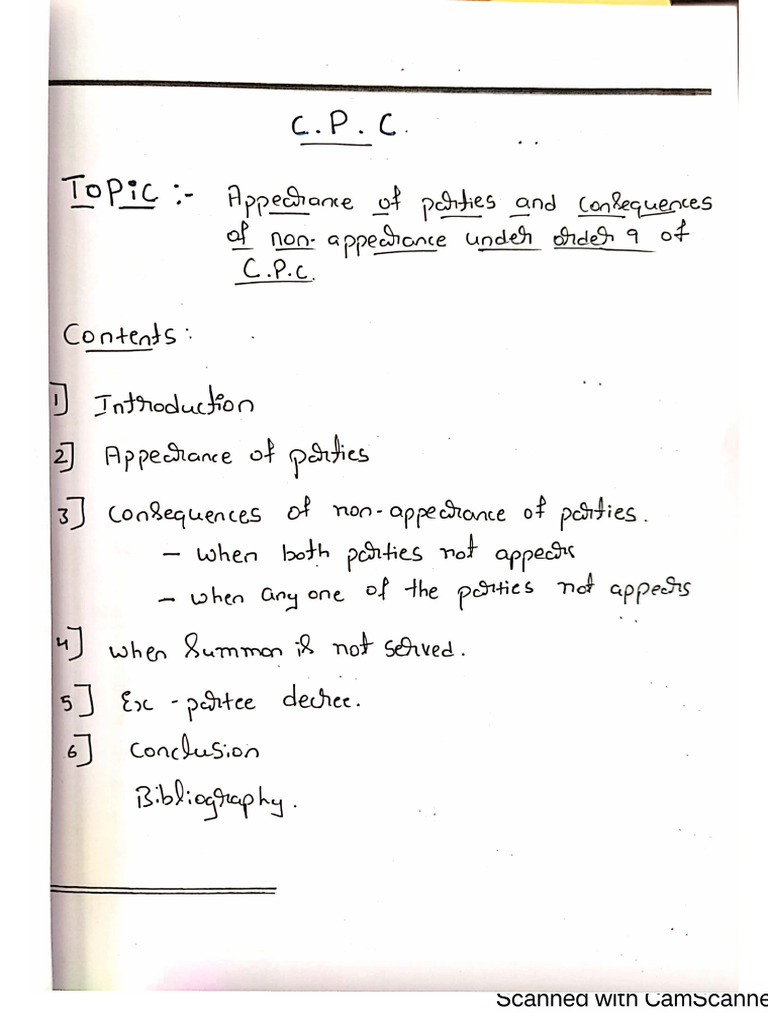 C.P.C.
Topic :- Appearance of parties and consequences
of non-appearance under order 9 of
C.P.C.
Contents:
1] Introduction
2] Appearance of parties
3] Consequences of non-appearance of parties.
– when both parties not appears
– when any one of the parties not appears
4] when Summon is not served.
5] Ex-partee decree.
6] Conclusion
Bibliography.
Scanned with CamScanne